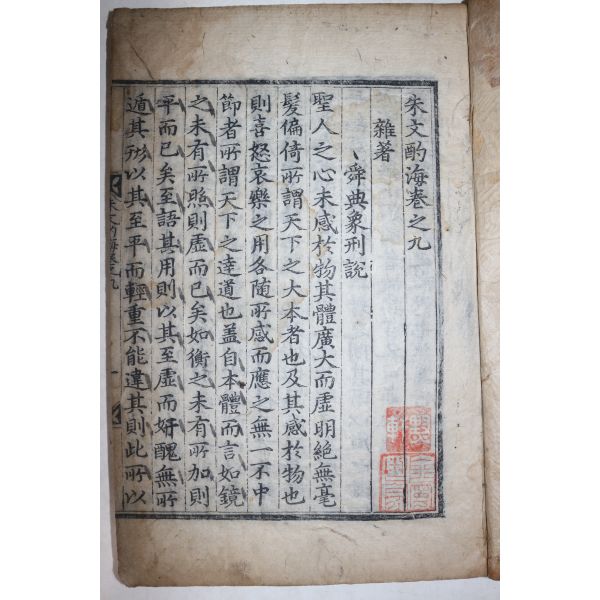 朱文酌海卷之九
雜著
舜典象刑說
聖人之心未感於物其體廣大而虛明絶無毫
髮偏倚所謂天下之大本者也及其感於物也
則喜怒哀樂之用各隨所感而應之無一不中
節者所謂天下之達道也盖自本體而言如鏡
之未有所照則虛而已矣如衡之未有所加則
平而已矣至語其用則以其至虛而好醜無所
遁其形以其至平而輕重不能違其則此所以
朱文酌海卷九
一